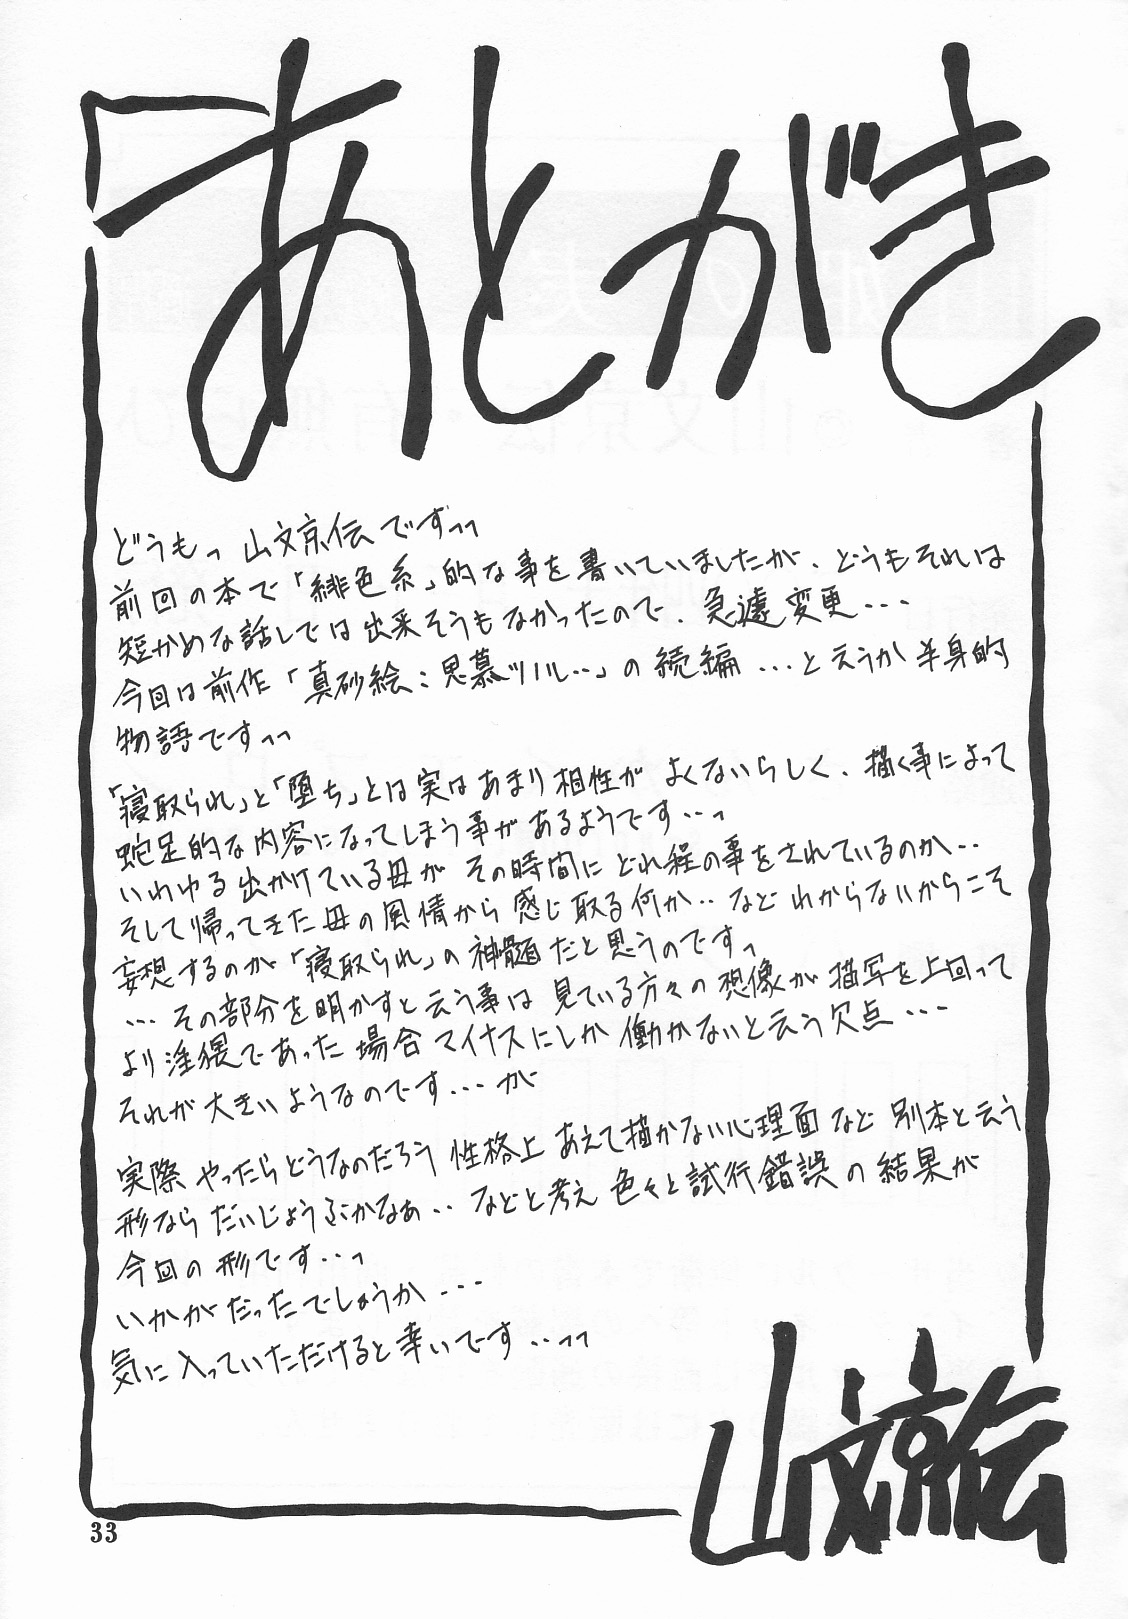 あとがき
どうもっ 山文京伝ですっっ
前回の本で「緋色系」的な事を書いていましたが、どうもそれは
短かめな話しでは出来そうもなかったので、急遽変更・・・
今回は前作「真砂絵:思慕ツノル・・」の続編・・・と云うか半身的
物語ですっっ
「寝取られ」と「堕ち」とは実はあまり相性がよくないらしく、描く事によって
蛇足的な内容になってしまう事があるようです・・っ
いわゆる出かけている母がその時間にどれ程の事をされているのか・・
そして帰ってきた母の風情から感じ取る何か・・などわからないからこそ
妄想するのが「寝取られ」の神髄だと思うのですっ
・・・その部分を明かすと云う事は見ている方々の想像が描写を上回って
より淫猥であった場合マイナスにしか働かないと云う欠点・・・
それが大きいようなのです・・・が
実際やったらどうなのだろう 性格上あえて描かない心理面など別本と云う
形ならだいじょうぶかなぁ・・などと考え色々と試行錯誤の結果が
今回の形です・・っ
いかがだったでしょうか・・・
気に入っていただけると幸いです・・っっ
山文京伝
33